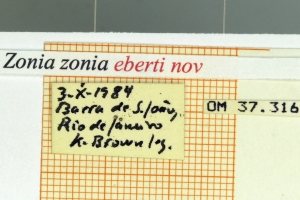 Zonia zonia eberti nov
3-X-1984
Barra de S. João,
Rio de Janeiro
K. Brown leg.
OM 37.316